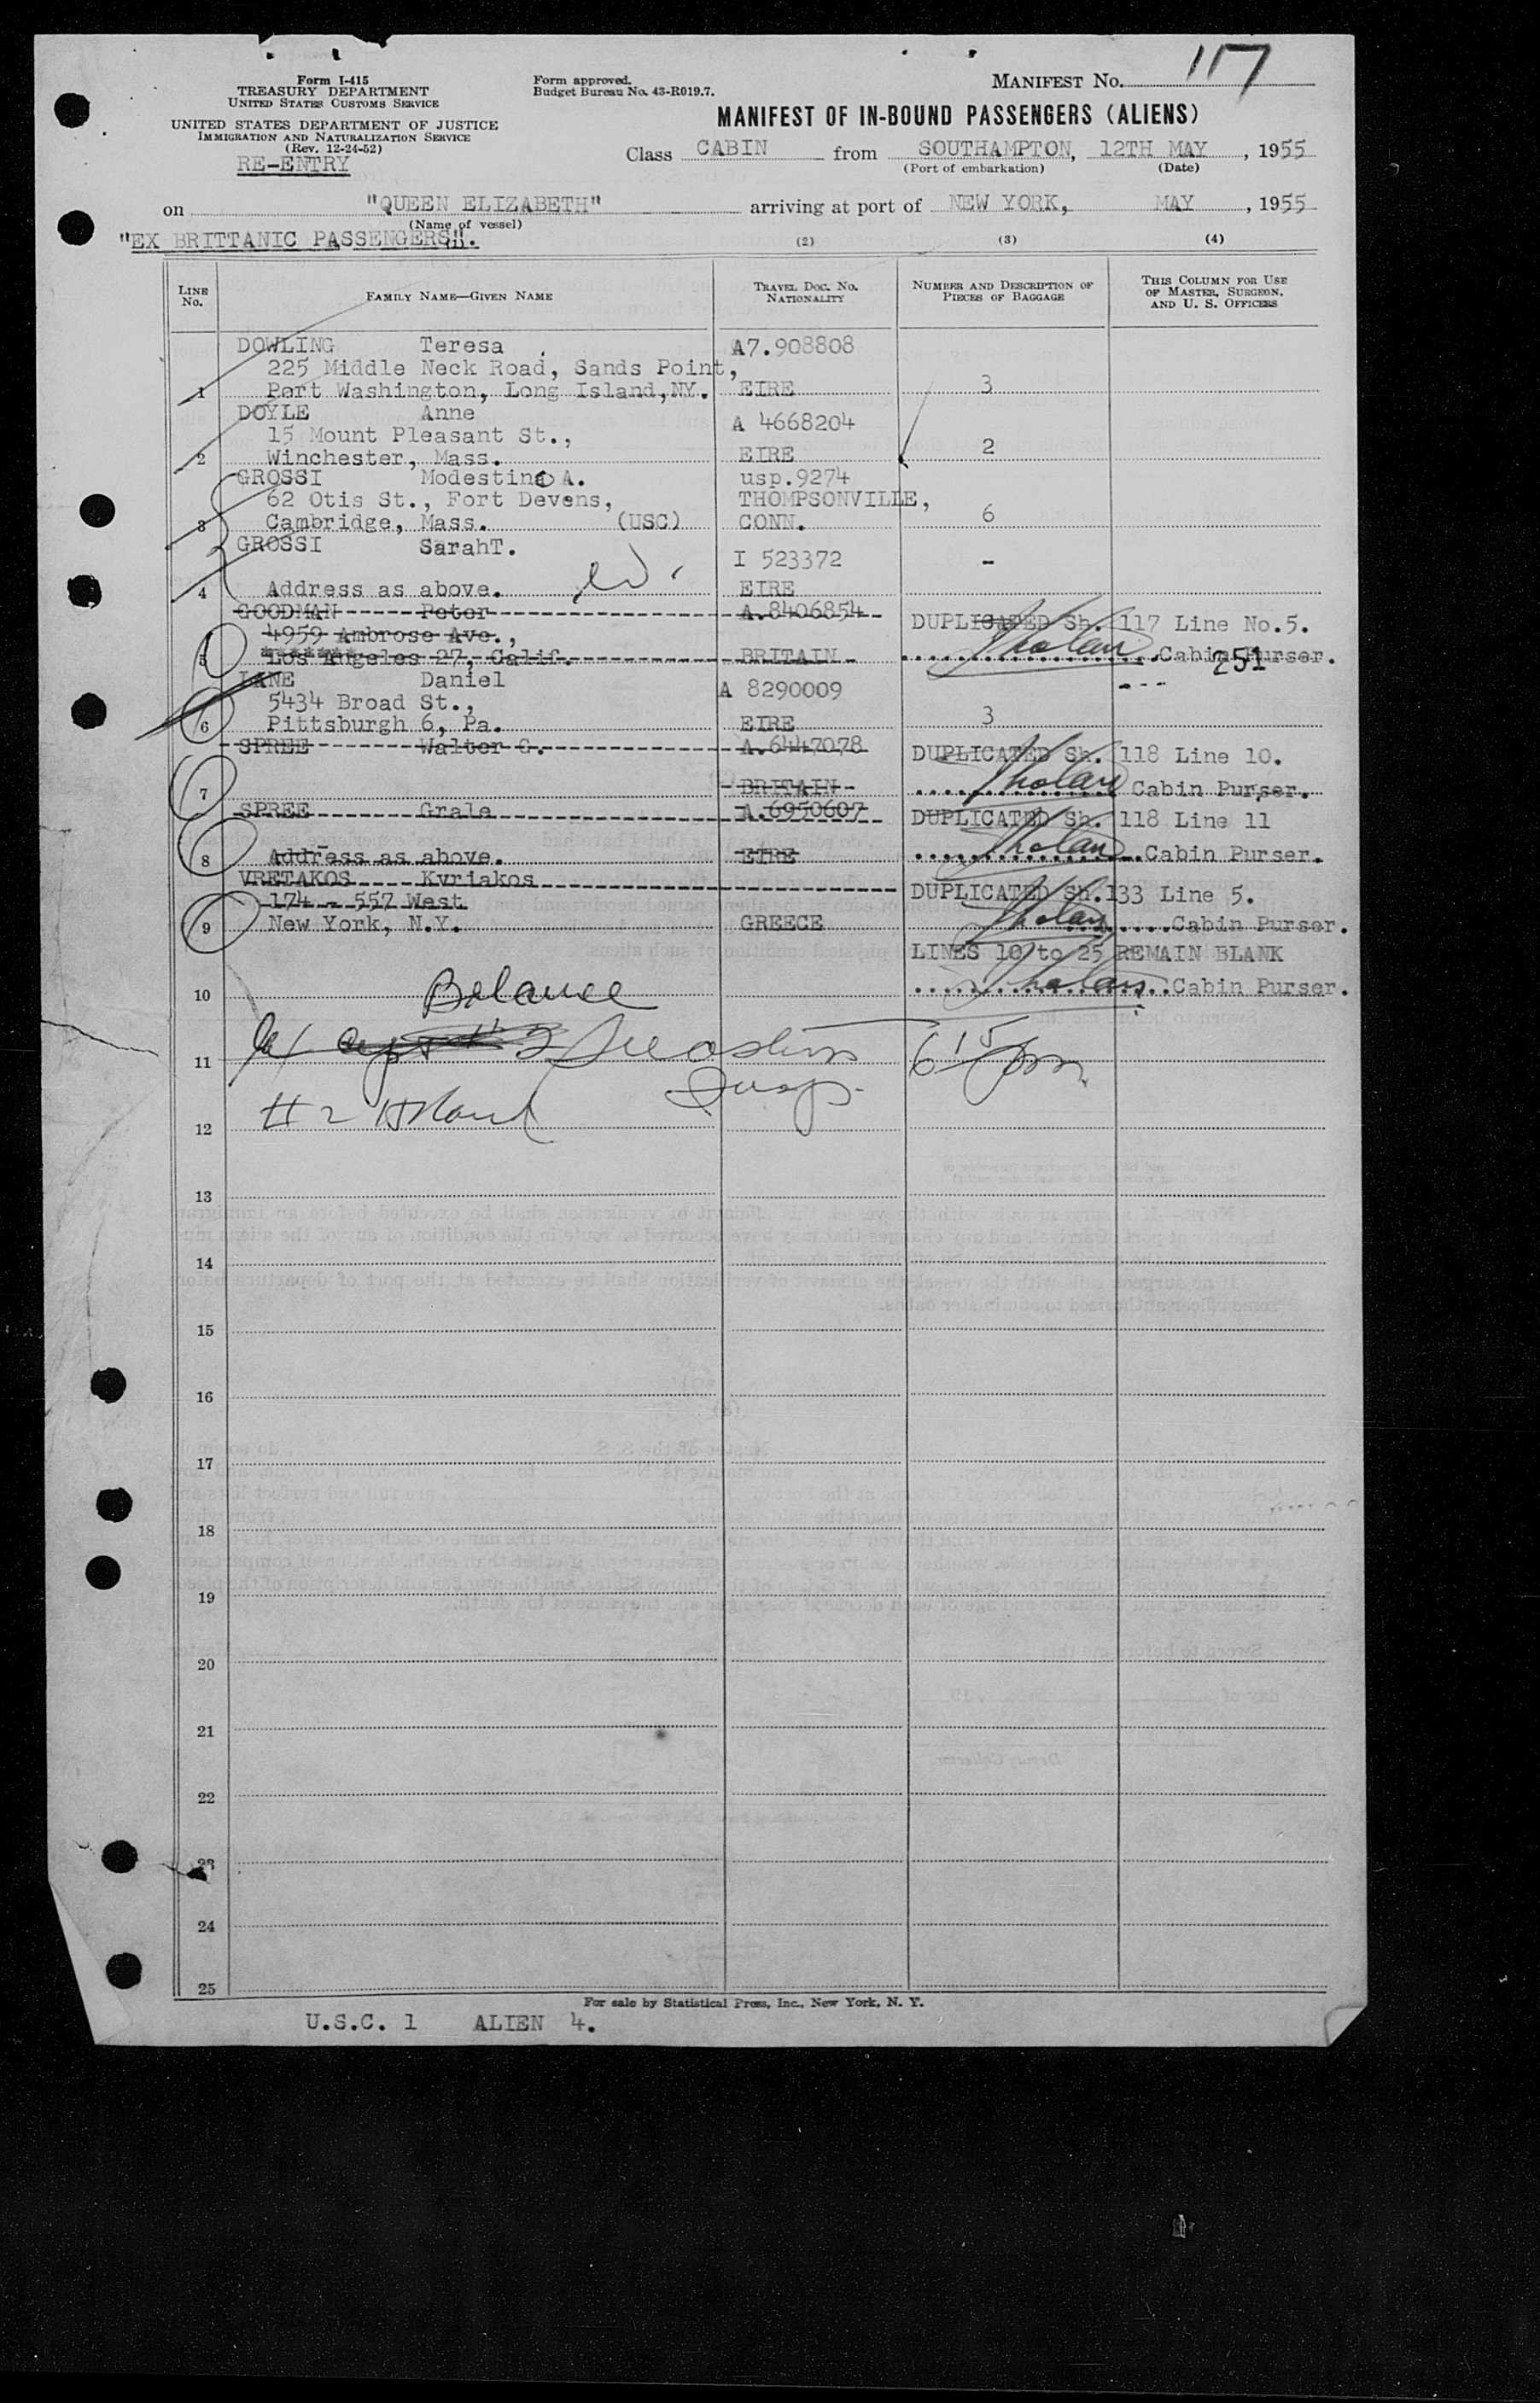 Form I-415
TREASURY DEPARTMENT
UNITED STATES CUSTOMS SERVICE
UNITED STATES DEPARTMENT OF JUSTICE
IMMIGRATION AND NATURALIZATION SERVICE
(Rev. 12-24-52)
RE-ENTRY
Form approved.
Budget Bureau No. 43-R019.7.
MANIFEST No. 117
MANIFEST OF IN-BOUND PASSENGERS (ALIENS)
Class CABIN from SOUTHAMPTON, 12TH MAY, 1955
(Port of embarkation) (Date)
on "QUEEN ELIZABETH" arriving at port of NEW YORK, MAY, 1955
(Name of vessel)
"EX BRITTANIC PASSENGERS".
(2) (3) (4)
LINE No. FAMILY NAME—GIVEN NAME TRAVEL DOC. NO. NATIONALITY NUMBER AND DESCRIPTION OF PIECES OF BAGGAGE THIS COLUMN FOR USE OF MASTER, SURGEON, AND U. S. OFFICERS
DOWLING Teresa A7.908808
225 Middle Neck Road, Sands Point,
1 Port Washington, Long Island,NY. EIRE 3
DOYLE Anne A 4668204
15 Mount Pleasant St.,
2 Winchester, Mass. EIRE 2
GROSSI Modestino A. usp.9274
62 Otis St., Fort Devens, THOMPSONVILLE,
3 Cambridge, Mass. (USC) CONN. 6
GROSSI SarahT. I 523372 -
4 Address as above. EIRE
GOODMAN Peter A.8406854 DUPLICATED Sh. 117 Line No.5.
4959 Ambrose Ave.,
5 Los Angeles 27, Calif. BRITAIN Cabin Purser. 251
LANE Daniel A 8290009
5434 Broad St.,
6 Pittsburgh 6, Pa. EIRE 3
SPREE Walter G. A.6447078 DUPLICATED Sh. 118 Line 10.
7 BRITAIN Cabin Purser.
SPREE Grale A.6950607 DUPLICATED Sh. 118 Line 11
8 Address as above. EIRE Cabin Purser.
VRETAKOS Kyriakos DUPLICATED Sh.133 Line 5.
174 - 557 West
9 New York, N.Y. GREECE Cabin Purser.
LINES 10 to 25 REMAIN BLANK
10 Balance Cabin Purser.
11 6 15 pm
Insp.
12 # 2
13
14
15
16
17
18
19
20
21
22
23
24
25
For sale by Statistical Press, Inc., New York, N. Y.
U.S.C. 1 ALIEN 4.